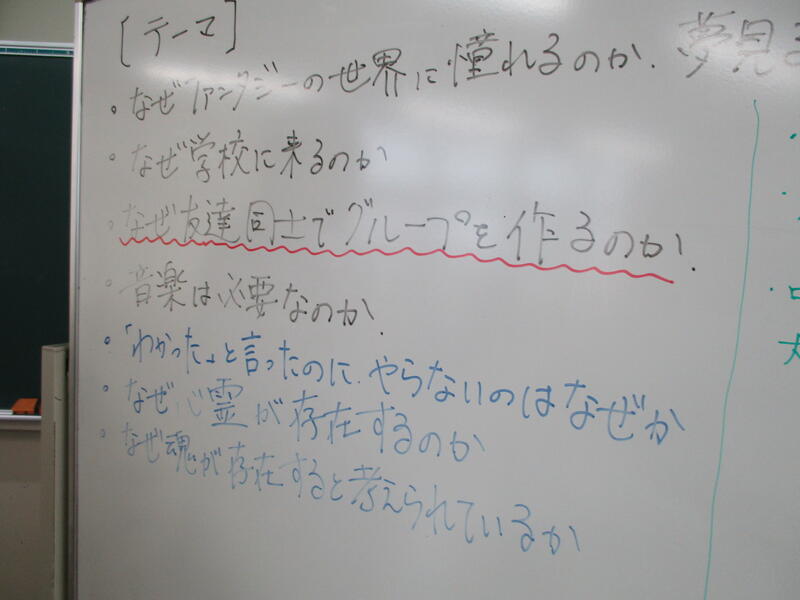 [テーマ]
・なぜファンタジーの世界に憧れるのか. 夢見る
・なぜ学校に来るのか
・なぜ友達同士でグループを作るのか.
・音楽は必要なのか.
・「わかった」と言ったのに、やらないのはなぜか
・なぜ心霊が存在するのか
・なぜ魂が存在すると考えられているか